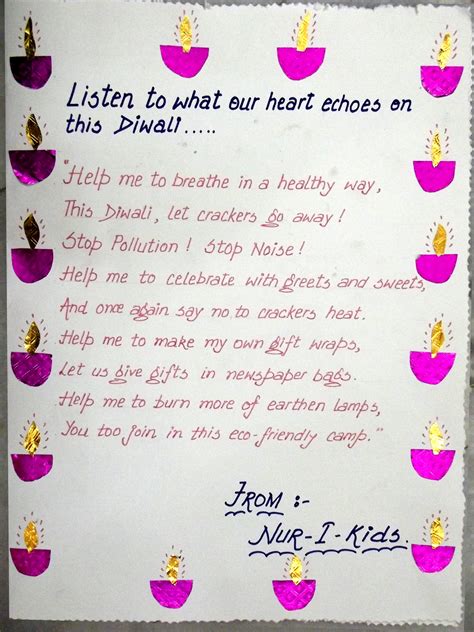 Listen to what our heart echoes on
this Diwali.....
"Help me to breathe in a healthy way,
This Diwali, let crackers go away!
Stop Pollution! Stop Noise!
Help me to celebrate with greets and sweets,
And once again say no to crackers heat.
Help me to make my own gift wraps,
Let us give gifts in newspaper bags.
Help me to burn more of earthen lamps,
You too join in this eco-friendly camp."
FROM :-
NUR-I-KIDS.